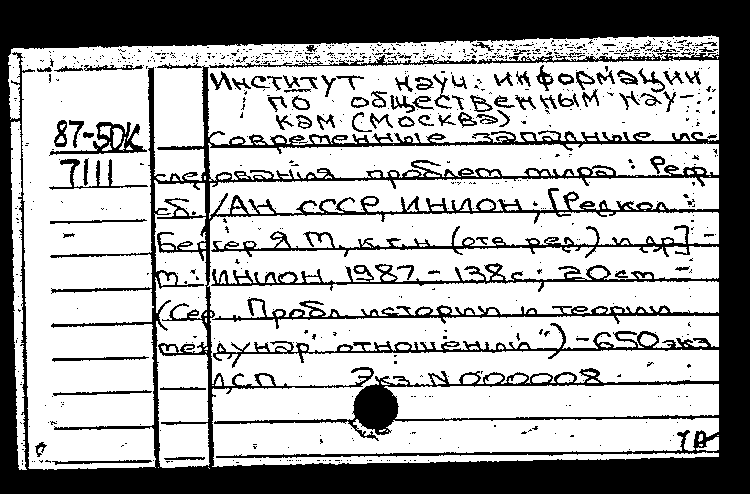 Институт науч. информации
по общественным нау-
кам (Москва).
87-50К
Современные западные ис-
7111
следования проблем мира: Реф.
сб. /АН СССР, ИНИОН; [Редкол.:
Бергер Я.М., к.г.н. (отв. ред.) и др.] -
м.: ИНИОН, 1987. - 138с.; 20см -
(Сер. "Пробл. истории и теории
междунар. отношений") - 650 экз.
ДСП. Экз. N 000008.